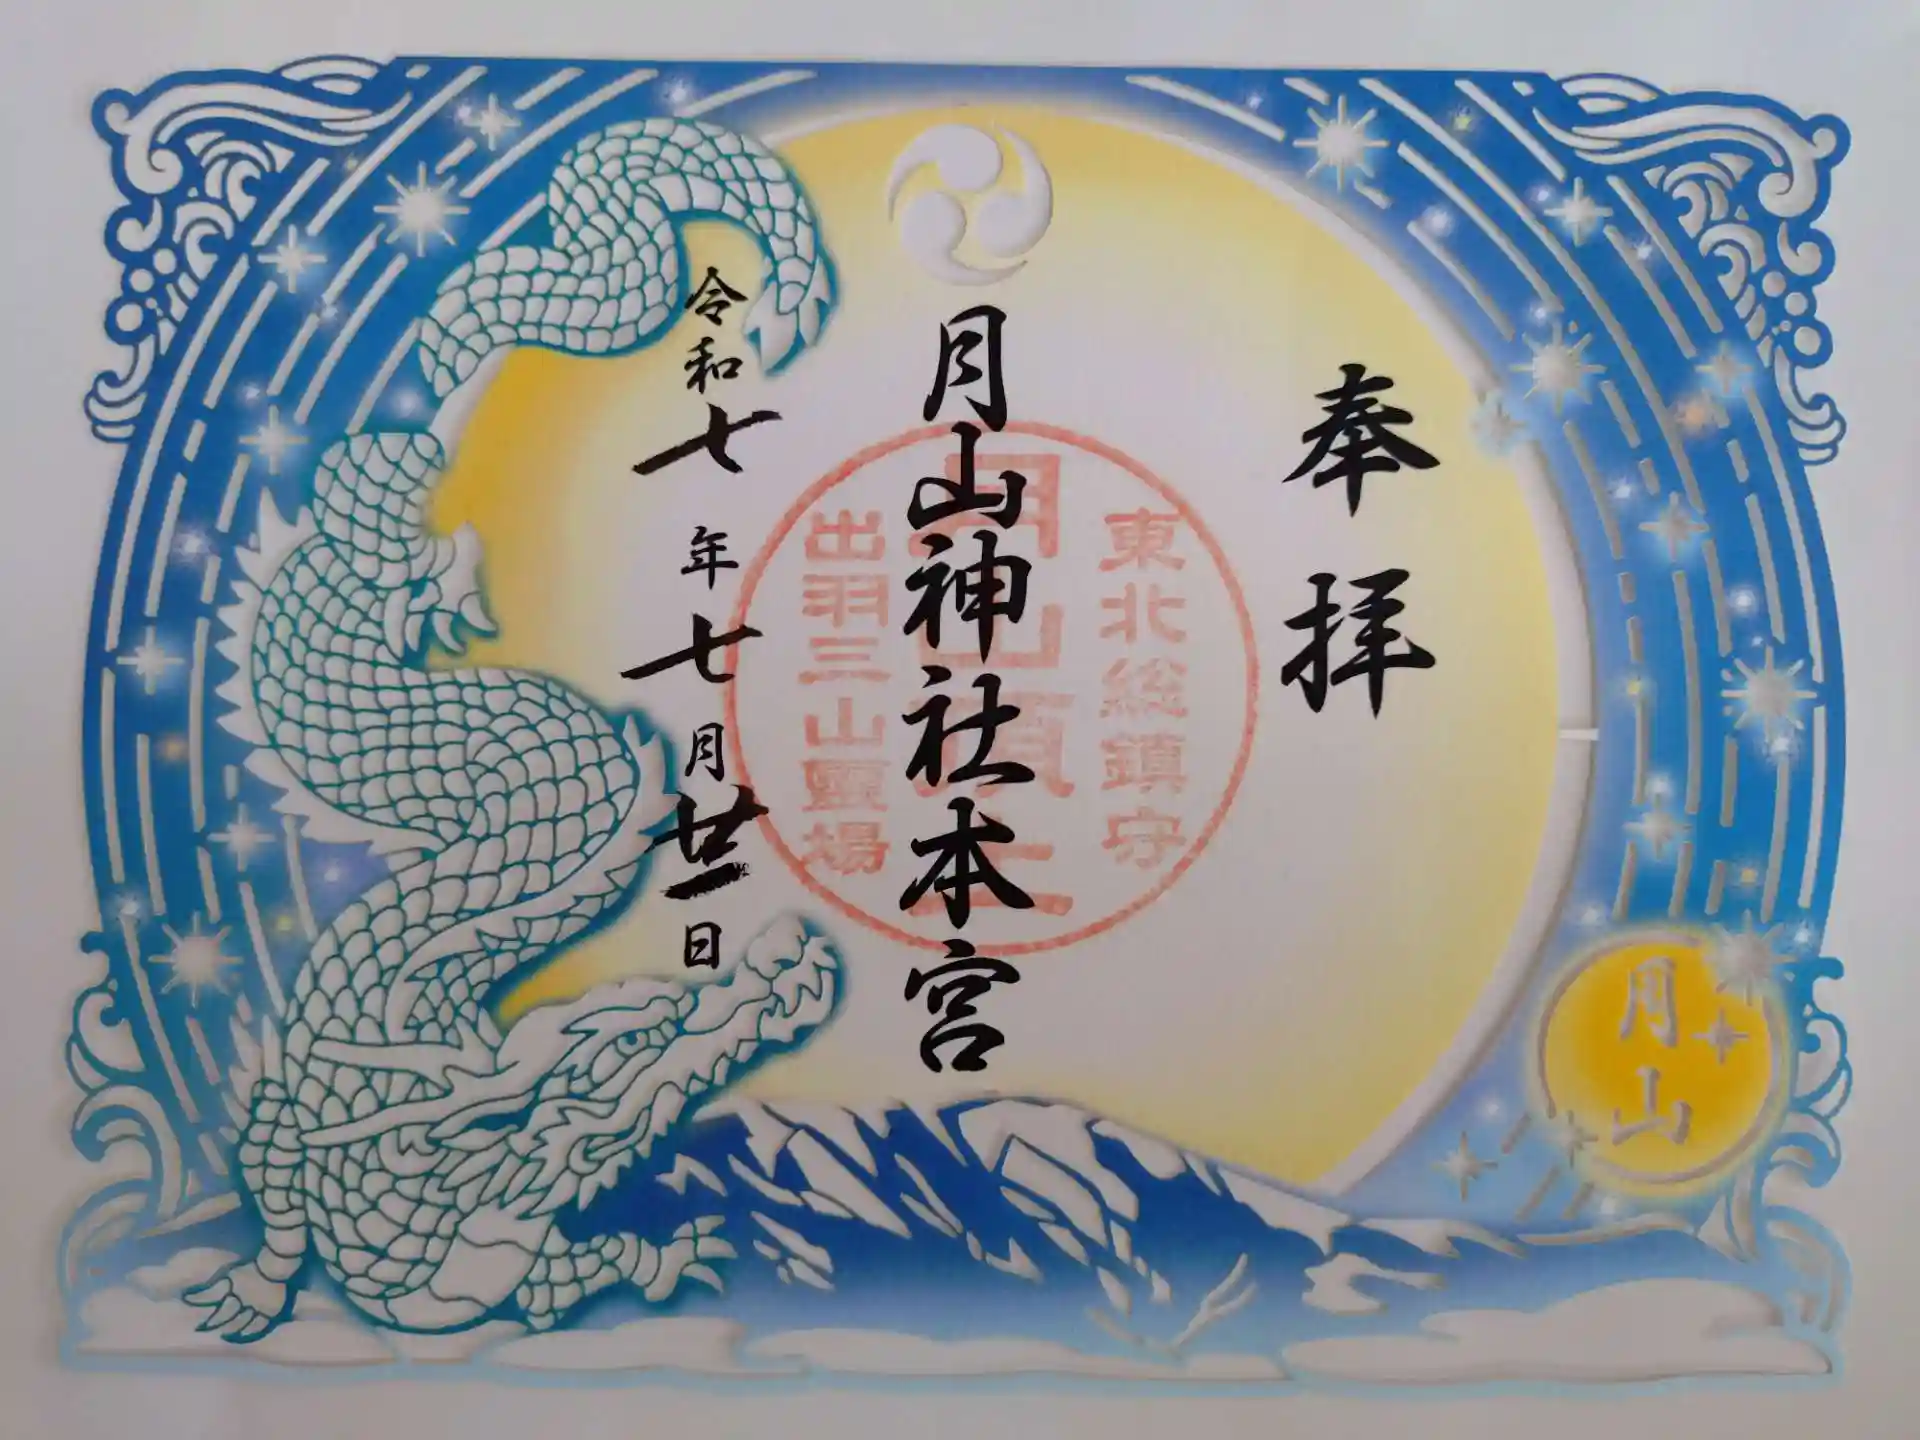 奉拝
東北総鎮守
月山頂上
出羽三山靈場
月山神社本宮
令和七年七月廿一日
月山